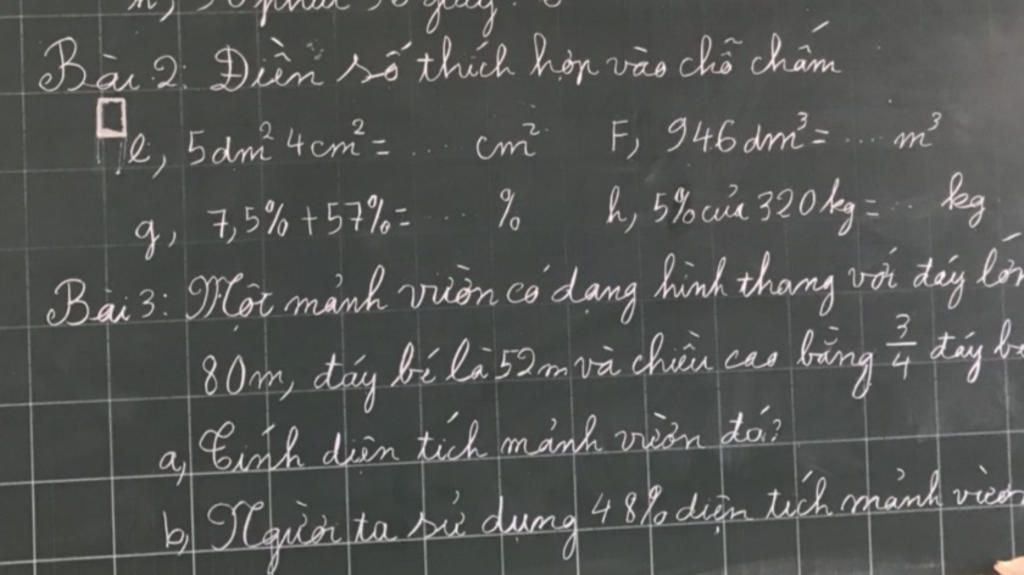 Bài 2: Điền số thích hợp vào chỗ chấm
e, 5dm² 4cm² = .... cm² F, 946dm³ = ... m³
g, 7,5% + 57% = .... % h, 5% của 320kg = .. kg
Bài 3: Một mảnh vườn có dạng hình thang với đáy lớn
80m, đáy bé là 52m và chiều cao bằng 3/4 đáy
a, Tính diện tích mảnh vườn đó?
b, Người ta sử dụng 48% diện tích mảnh vườn